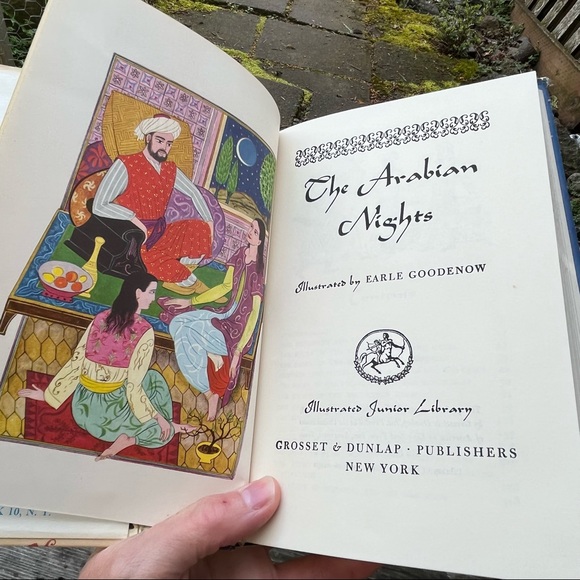 The Arabian
Nights
Illustrated by EARLE GOODENOW
Illustrated Junior Library
GROSSET & DUNLAP · PUBLISHERS
NEW YORK
10, N. Y.